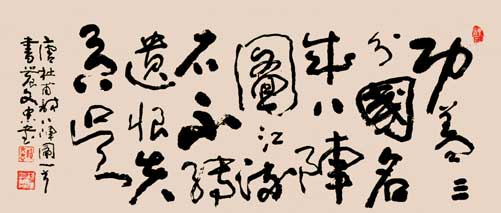 功蓋三
分國名
成八陣
圖江流
石不轉
遺恨失
吞吳
唐杜甫詩八陣圖一首